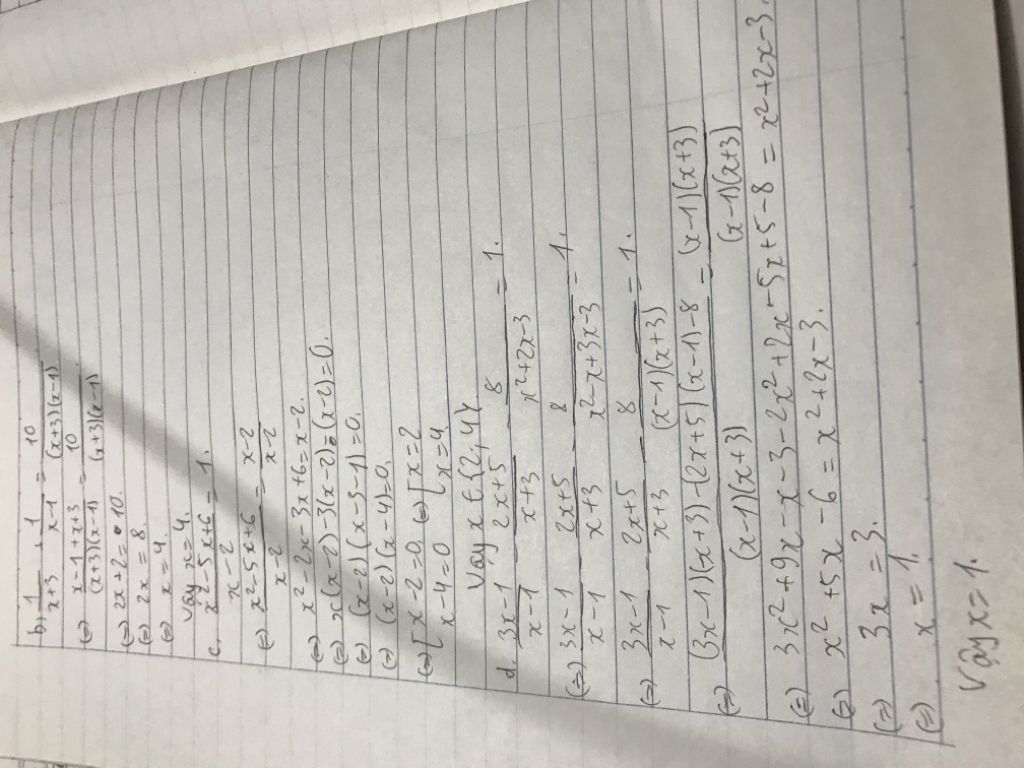 b) 1/(x+3) + 1/(x-1) = 10/((x+3)(x-1))
(=) (x-1+x+3)/((x+3)(x-1)) = 10/((x+3)(x-1))
(=) 2x+2 = 10.
(=) 2x = 8.
(=) x = 4.
Vậy x=4.
c. (x²-5x+6)/(x-2) = 1.
(=) (x²-5x+6)/(x-2) = (x-2)/(x-2)
(=) x²-2x-3x+6=x-2.
(=) x(x-2)-3(x-2)-(x-2)=0.
(=) (x-2)(x-3-1)=0.
(=) (x-2)(x-4)=0.
(=) [x-2=0 (=) [x=2
x-4=0 x=4.
Vậy x ∈ {2,4}
d. (3x-1)/(x-1) - (2x+5)/(x+3) - 8/(x²+2x-3) = 1.
(=) (3x-1)/(x-1) - (2x+5)/(x+3) - 8/(x²-x+3x-3) = 1.
(=) (3x-1)/(x-1) - (2x+5)/(x+3) - 8/((x-1)(x+3)) = 1.
(=) ((3x-1)(x+3)-(2x+5)(x-1)-8)/((x-1)(x+3)) = ((x-1)(x+3))/((x-1)(x+3))
(=) 3x²+9x-x-3-2x²+2x-5x+5-8 = x²+2x-3.
(=) x²+5x-6 = x²+2x-3.
(=) 3x = 3.
(=) x = 1.
Vậy x=1.